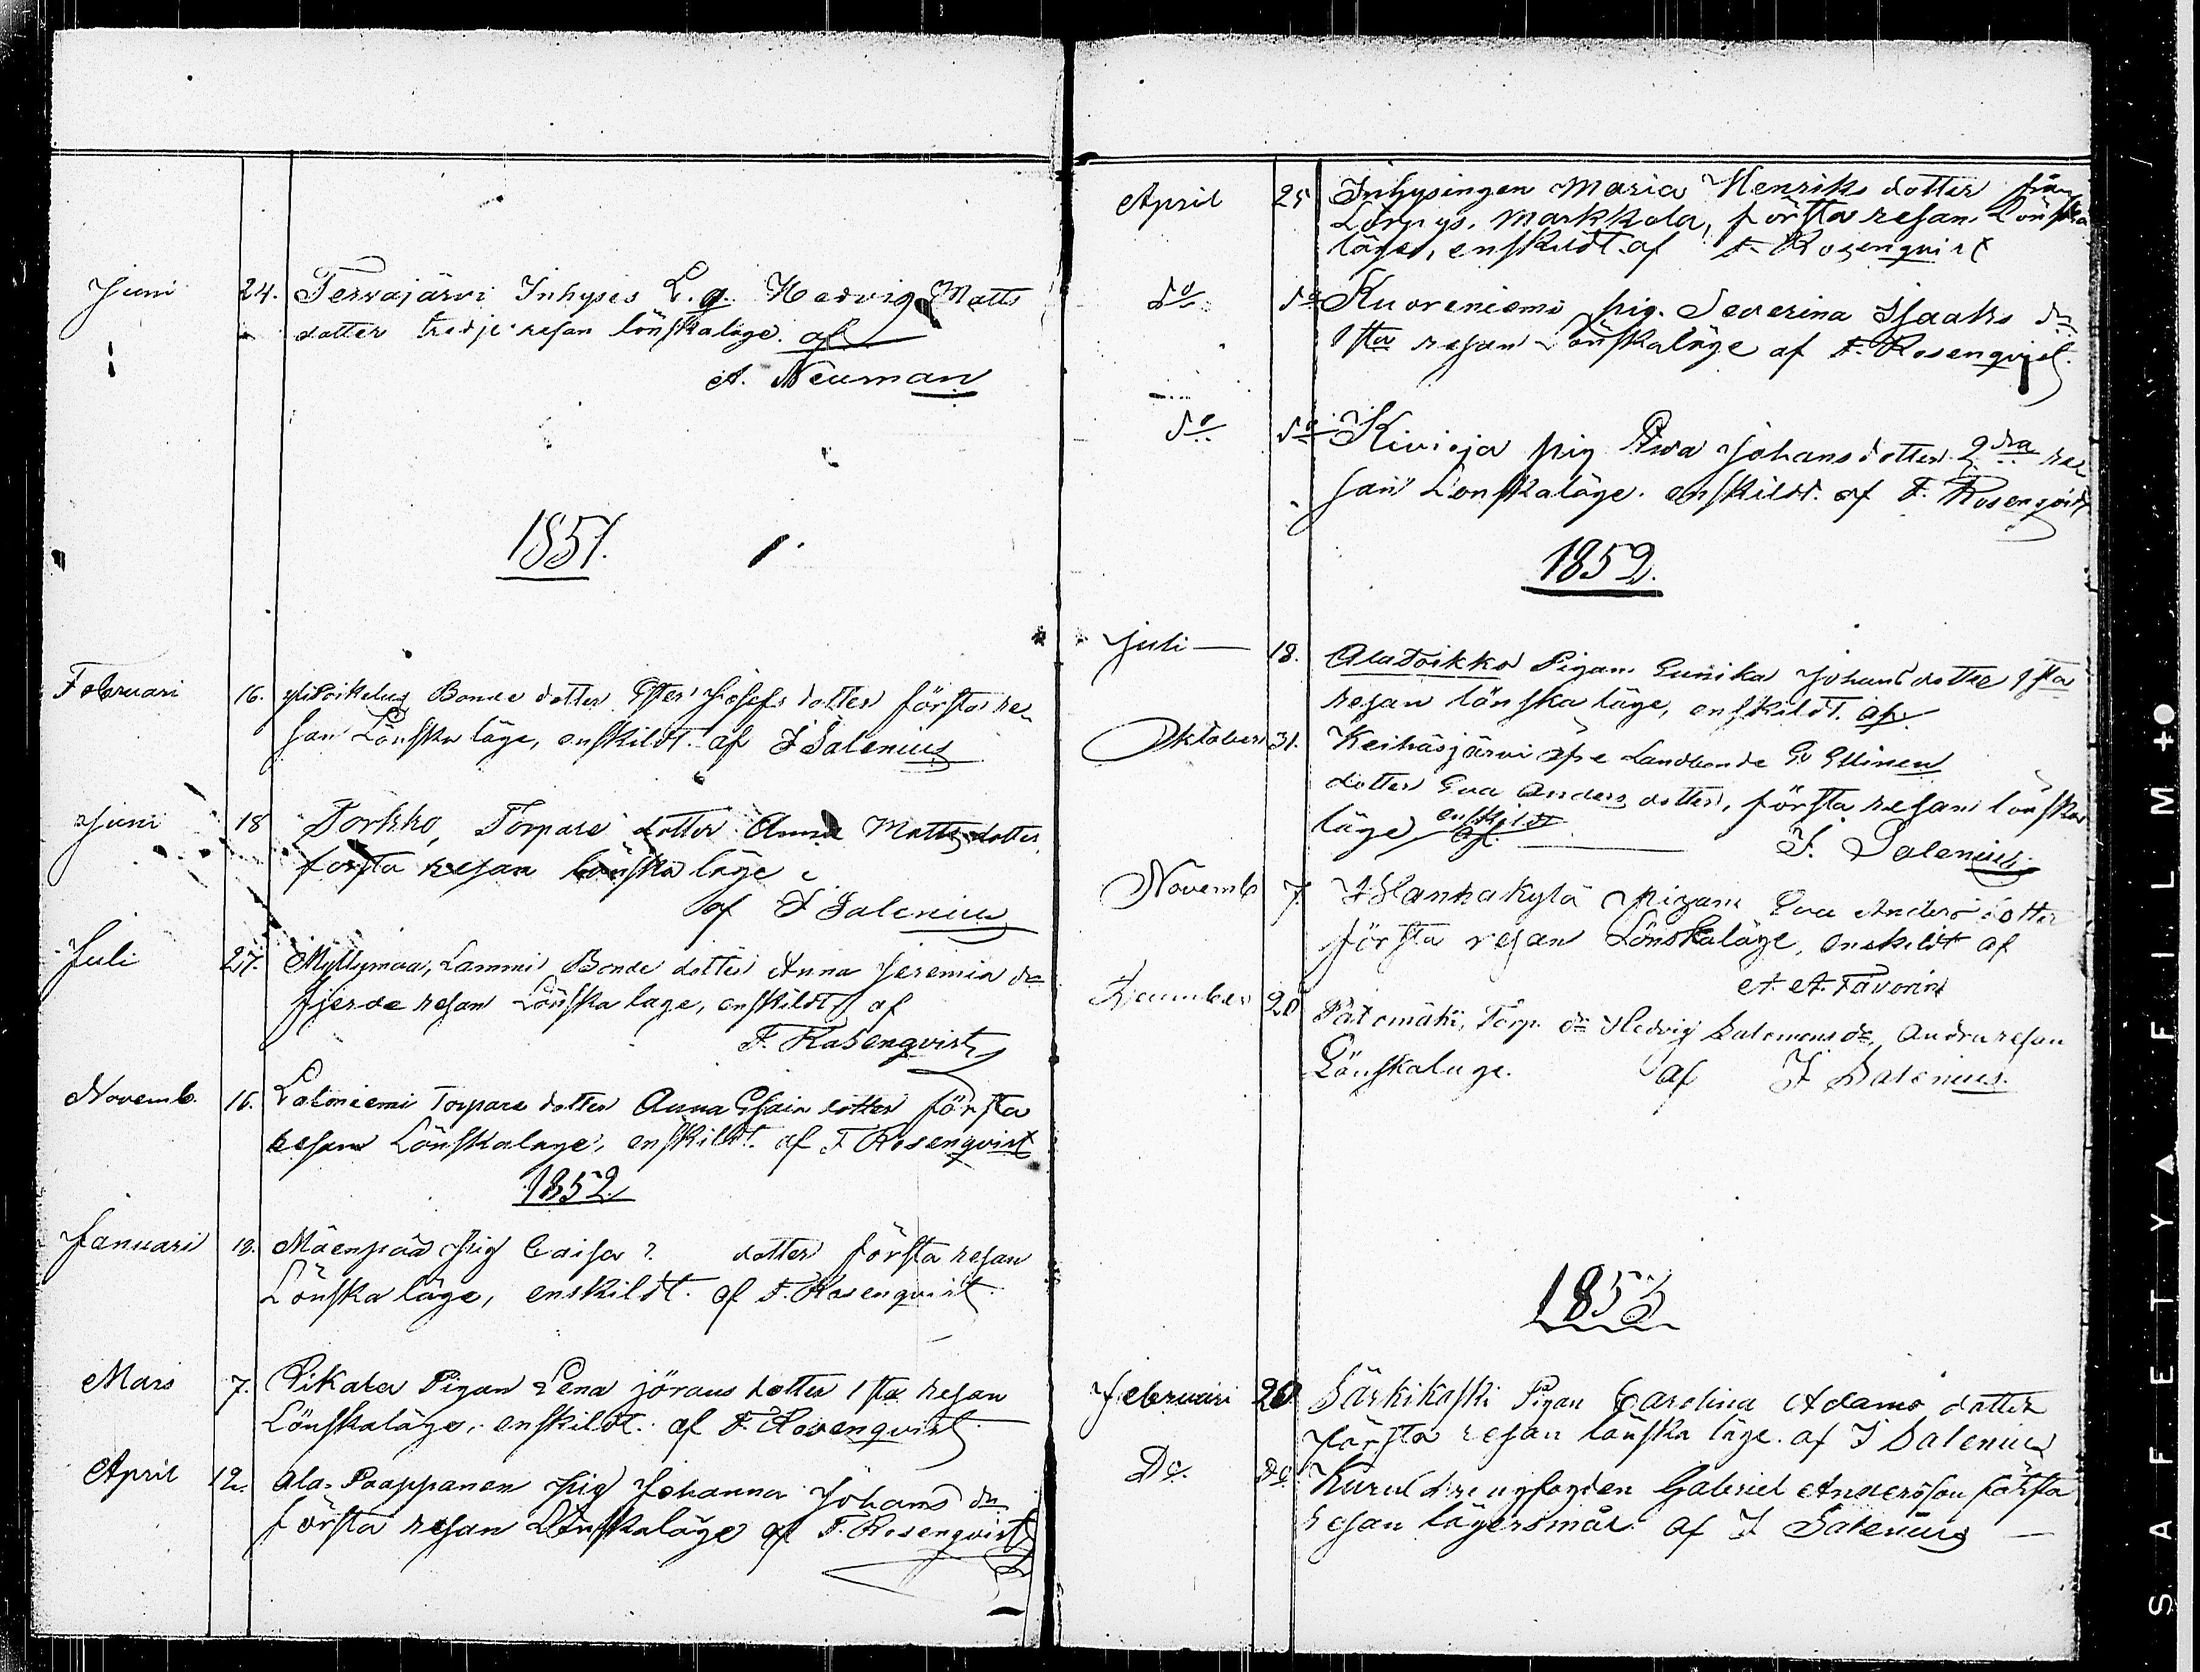 Juni 24. Tervajärvi Inhyses L. g. Hedvig Matts
dotter tredje resan lönskaläge. af
A. Neuman
1851.
Februari 16. Bonde dotter Ester Josefs dotter första re-
san Lönska läge, enskildt af F Salenius
Juni 18 Torkko, Torpare dotter Anna Matts dotter
första resan lönska läge
af F Salenius
Juli 27. Myllymaa, Lammi Bonde dotter Anna Jeremia dr
fjerde resan Lönska läge, enskildt af
F. Rosenqvist
Novemb. 16. Torpare dotter Anna Esaia dotter första
resan Lönskaläge, enskildt. af F Rosenqvist
1852
Januari 19. Mäenpää pig Caisa ? dotter första resan
Lönska läge, enskildt. af F. Rosenqvist
Mars 7. Pigan Lena jörans dotter 1sta resan
Lönskaläge, enskildt. af F. Rosenqvist
April 12. Ala-Paappanen pig Johanna Johans dr
första resan Lönskaläge af F. Rosenqvist
April 25 Inhysingen Maria Henriks dotter från
Markkola, första resan Lönska
läge, enskildt af F Rosenqvist
do do Kuoreniemi pig. Severina Isaaks dr
1sta resan Lönskaläge af F. Rosenqvist.
do do Kivioja pig Ewa Johans dotter 2dra re-
san Lönskaläge. enskildt. af F. Rosenqvist
1852.
Juli 18. Alatoikko Pigan Gunika Johans dotter 1sta
resan lönska läge, enskildt. af
Oktober 31. Keihäsjärvi Landbonde Ellinen
dotter Eva Anders dotter, första resan lönska
läge enskildt
af F. Salenius
Novemb 7. Hanhakylä pigan Eva Anders dotter
första resan Lönskaläge, enskildt af
A. A. Favorin
December 20 Pätomäki, Torp. dr Hedvig Salomons dr. Andra resan
Lönskaläge. af F Salenius.
1853
Februari 20 Särkikoski Pigan Carolina Adams dotter
första resan lönska läge. af F Salenius
Do. Do. Drengfogden Gabriel Andersson första
resan lägersmål af F Salenius
S A F E T Y ▲ F I L M